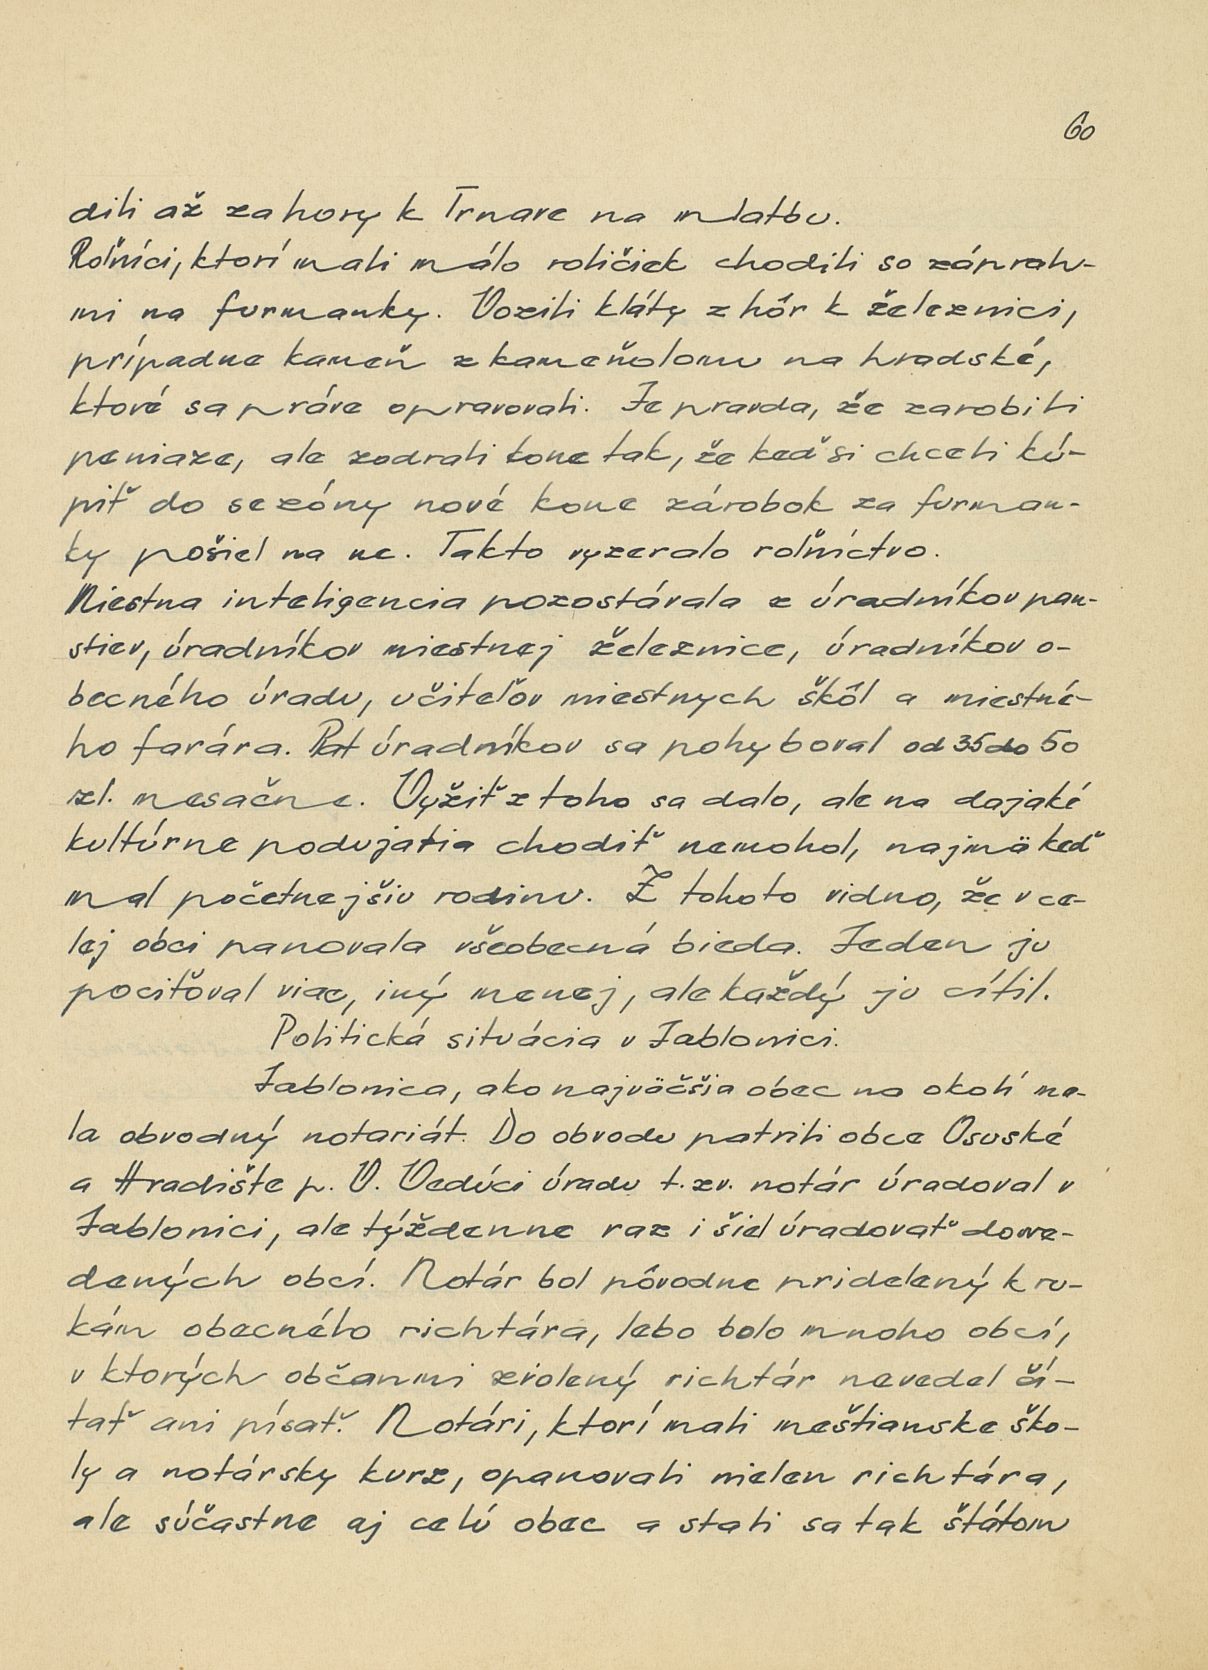 60
dili až za hory k Trnave na mlatbu.
Roľníci, ktorí mali málo roličiek chodili so záprah-
mi na furmanky. Vozili kláty z hôr k železnici,
prípadne kameň z kameňolomu na hradské,
ktoré sa práve opravovali. Je pravda, že zarobili
peniaze, ale zodrali kone tak, že keď si chceli kú-
piť do sezóny nové kone zárobok za furman-
ky pošiel na ne. Takto vyzeralo roľníctvo.
Miestna inteligencia pozostávala z úradníkov pan-
stiev, úradníkov miestnej železnice, úradníkov o-
becného úradu, učiteľov miestnych škôl a miestné-
ho farára. Plat úradníkov sa pohyboval od 35 do 50
zl. mesačne. Vyžiť z toho sa dalo, ale na dajaké
kultúrne podujatia chodiť nemohol, najmä keď
mal početnejšiu rodinu. Z tohoto vidno, že v ce-
lej obci panovala všeobecná bieda. Jeden ju
pociťoval viac, iný menej, ale každý ju cítil.
Politická situácia v Jablonici.
Jablonica, ako najväčšia obec na okolí ma-
la obvodný notariát. Do obvodu patrili obce Osuské
a Hradište p. V. Vedúci úradu t. zv. notár úradoval v
Jablonici, ale týždenne raz i šiel úradovať do uve-
dených obcí. Notár bol pôvodne pridelený k ru-
kám obecného richtára, lebo bolo mnoho obcí,
v ktorých občanmi zvolený richtár nevedel čí-
tať ani písať. Notári, ktorí mali meštianske ško-
ly a notársky kurz, opanovali nielen richtára,
ale súčastne aj celú obec a stali sa tak štátom